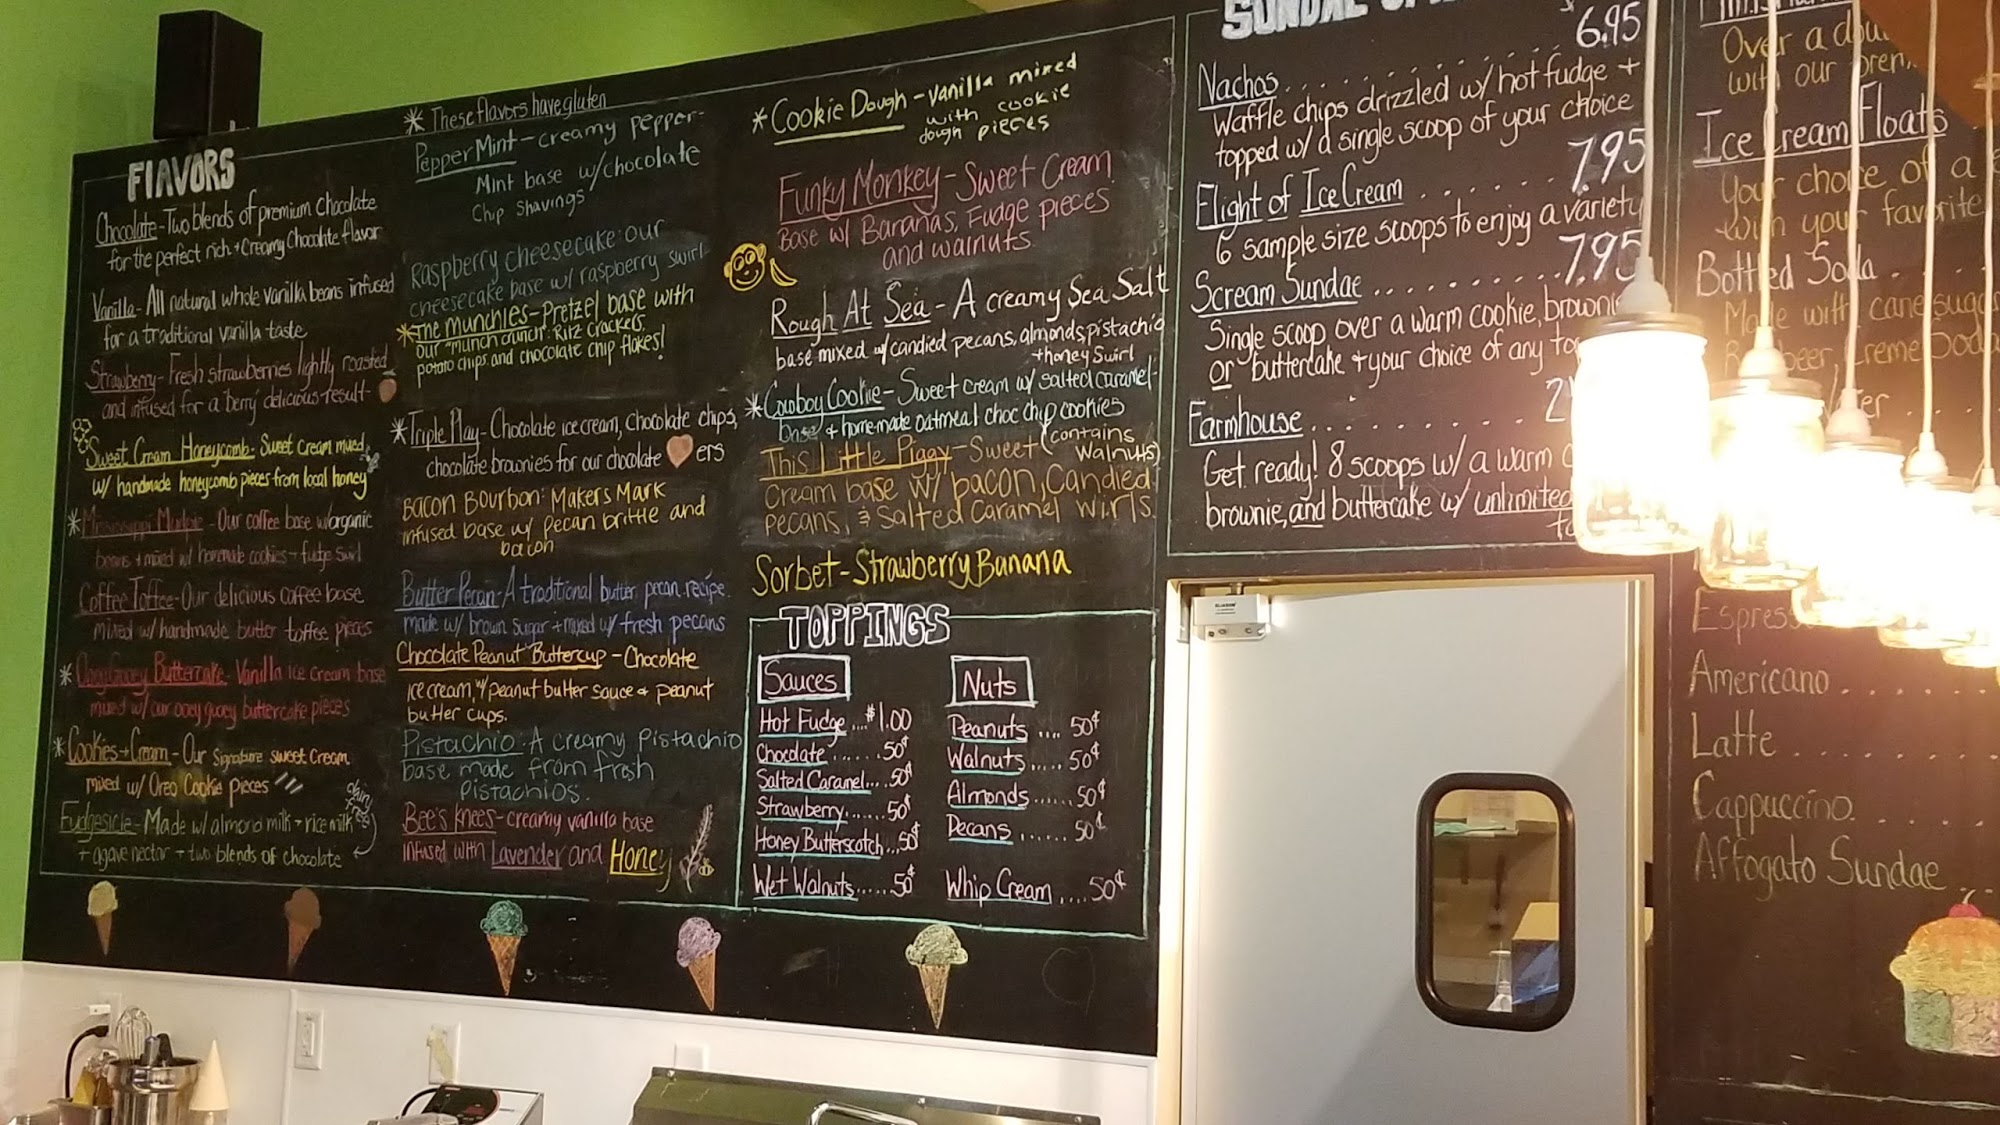 FLAVORS
Chocolate - Two blends of premium chocolate
for the perfect rich + creamy Chocolate flavor
Vanilla - All natural whole vanilla beans infused
for a traditional vanilla taste
Strawberry - Fresh strawberries lightly roasted
and infused for a "berry" delicious result -
Sweet Cream Honeycomb - Sweet cream mixed
w/ handmade honeycomb pieces from local honey
* Mississippi Mudpie - Our coffee base w/organic
beans + mixed w/ homemade cookies + fudge swirl
Coffee Toffee - Our delicious coffee base
mixed w/ handmade butter toffee pieces
* Ooey Gooey Buttercake - Vanilla ice cream base
mixed w/ our ooey gooey buttercake pieces
* Cookies + Cream - Our signature sweet cream
mixed w/ Oreo Cookie pieces
Fudgesicle - Made w/ almond milk + rice milk
+ agave nectar + two blends of chocolate
dairy free
* These flavors have gluten
PepperMint - creamy pepper-
Mint base w/chocolate
Chip Shavings
Raspberry cheesecake: our
cheesecake base w/ raspberry swirl
* The Munchies - Pretzel base with
our "munch crunch": Ritz crackers,
potato chips and chocolate chip flakes!
* Triple Play - Chocolate ice cream, Chocolate chips,
chocolate brownies for our chocolate ers
Bacon Bourbon: Makers Mark
infused base w/ pecan brittle and
bacon
Butter Pecan - A traditional butter pecan recipe
made w/ brown sugar + mixed w/ fresh pecans
Chocolate Peanut Buttercup - Chocolate
ice cream, w/ peanut butter sauce + peanut
butter cups.
Pistachio: A creamy pistachio
base made from fresh
pistachios.
Bee's Knees - creamy vanilla base
infused with Lavender and Honey
* Cookie Dough - Vanilla mixed
with cookie
dough pieces
Funky Monkey - Sweet Cream
Base w/ Bananas, Fudge pieces
and walnuts
Rough At Sea - A creamy Sea Salt
base mixed w/ candied pecans, almonds, pistachio
+ honey swirl
* Cowboy Cookie - Sweet cream w/ salted caramel-
base + homemade oatmeal choc chip cookies
(contains walnuts)
This Little Piggy - Sweet
Cream base w/ bacon, Candied
pecans, & Salted Caramel wirls.
Sorbet - Strawberry Banana
TOPPINGS
Sauces
Hot Fudge .... $1.00
Chocolate ...... 50¢
Salted Caramel.... 50¢
Strawberry..... 50¢
Honey Butterscotch... 50¢
Wet Walnuts..... 50¢
Nuts
Peanuts .... 50¢
Walnuts ..... 50¢
Almonds ...... 50¢
Pecans ..... 50¢
Whip Cream .... 50¢
SUNDAE
Nachos . . . . . . . . . . 6.95
Waffle chips drizzled w/ hot fudge +
topped w/ a single scoop of your choice
Flight of Ice Cream . . . . . . . 7.95
6 sample size scoops to enjoy a variety
Scream Sundae . . . . . . . . . 7.95
Single scoop over a warm cookie, brownie
or buttercake + your choice of any
Farmhouse . . . . . . . . .
Get ready! 8 scoops w/ a warm
brownie, and buttercake w/ unlimited
Over a
with our
Ice Cream Floats
Your choice of a
with your favorite
Bottled Soda
Made with cane sugar
Creme Soda
Espresso
Americano . . . .
Latte . . . .
Cappuccino. . . .
Affogato Sundae . .